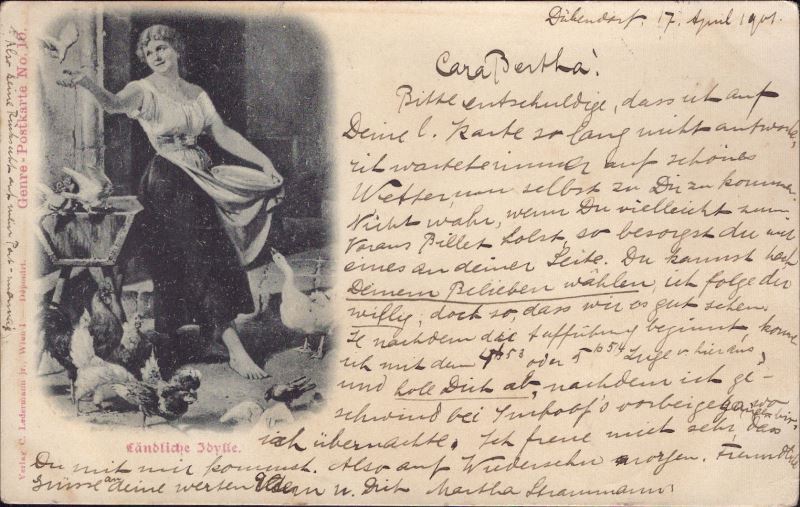 Dübendorf. 17. April 1901.
Cara Bertha!
Bitte entschuldige, dass ich auf
Deine l. Karte so lang nicht antworte,
ich wartete immer auf schönes
Wetter, um selbst zu Dir zu kommen.
Nicht wahr, wenn Du vielleicht zum
Voraus Billet holst, so besorgst du mir
eines an deiner Seite. Du kannst nach
Deinem Belieben wählen, ich folge dir
willig, doch so, dass wir es gut sehen.
Je nachdem die Aufführung beginnt, komme
ich mit dem 4h53 oder 5h54 Zuge v. hier aus,
und hole Dich ab, nachdem ich ge-
schwind bei Imhoof's vorbeigegangen, wo
ich übernachte. Ich freue mich sehr, dass
Du mit mir kommst. Also auf Wiedersehn morgen. Freundl.
Grüsse an deine werten Eltern u. Dich Martha
Ländliche Idylle.
Genre-Postkarte No. 16.
Verlag C. Ledermann jr., Wien I — Deponirt.
Also keine Rücksicht auf mein Port-monnaie